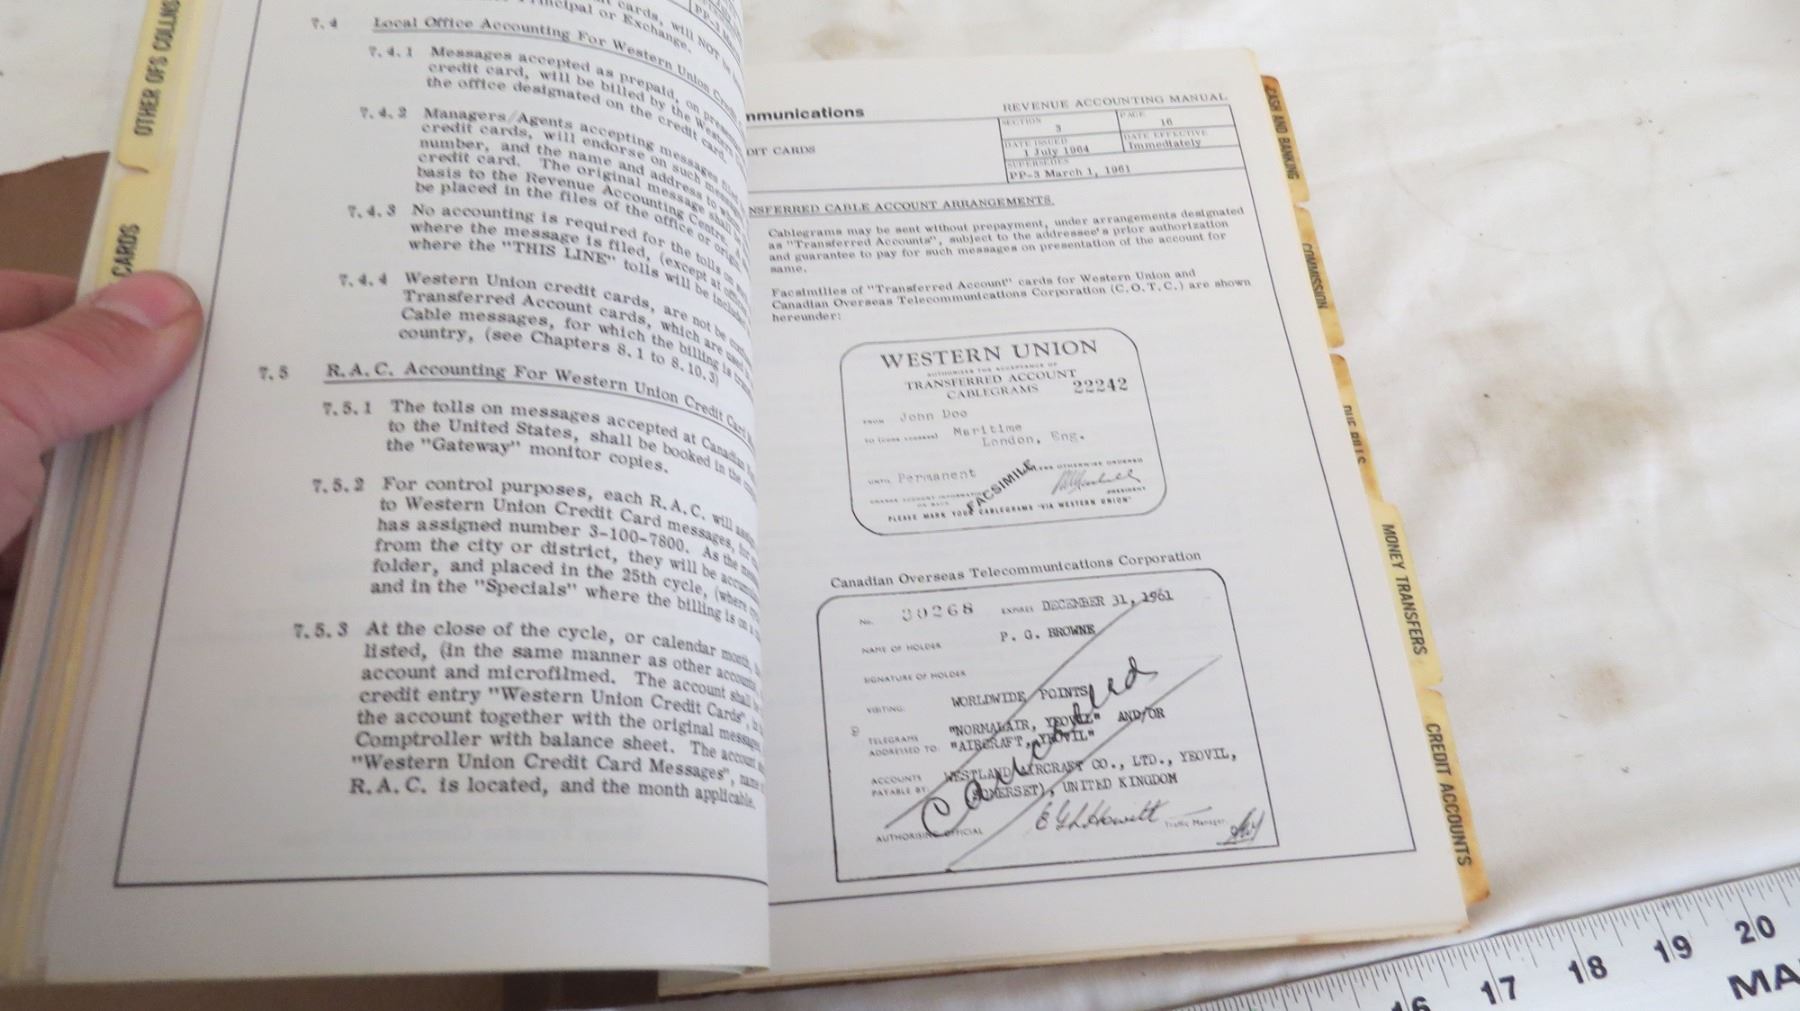 OTHER OFS COLLNS
CARDS
cards, will NOT be
Principal or Exchange.
7.4 Local Office Accounting For Western Union Credit
7.4.1 Messages accepted as prepaid, on
credit card, will be billed by the Western
the office designated on the credit card.
7.4.2 Managers/Agents accepting messages
credit cards, will endorse on such
number, and the name and address to
credit card. The original message shall
basis to the Revenue Accounting Centre.
be placed in the files of the office or
7.4.3 No accounting is required for the tolls on
where the message is filed, (except at
where the "THIS LINE" tolls will be
7.4.4 Western Union credit cards, are not be
Transferred Account cards, which are
Cable messages, for which the billing is
country, (see Chapters 8.1 to 8.10.3)
7.5 R.A.C. Accounting For Western Union Credit Card
7.5.1 The tolls on messages accepted at
to the United States, shall be booked in the
the "Gateway" monitor copies.
7.5.2 For control purposes, each R.A.C. will
to Western Union Credit Card messages,
has assigned number 3-100-7800. As the
from the city or district, they will be
folder, and placed in the 25th cycle, (where
and in the "Specials" where the billing is on a
7.5.3 At the close of the cycle, or calendar month,
listed, (in the same manner as other
account and microfilmed. The account shall
credit entry "Western Union Credit Cards",
the account together with the original
Comptroller with balance sheet. The account
"Western Union Credit Card Messages",
R.A.C. is located, and the month applicable.
mmunications
REVENUE ACCOUNTING MANUAL
DIT CARDS
SECTION 3
PAGE 16
DATE ISSUED 1 July 1964
DATE EFFECTIVE Immediately
SUPERSEDES
PP-3 March 1, 1961
NSFERRED CABLE ACCOUNT ARRANGEMENTS.
Cablegrams may be sent without prepayment, under arrangements designated
as "Transferred Accounts", subject to the addressee's prior authorization
and guarantee to pay for such messages on presentation of the account for
same.
Facsimilies of "Transferred Account" cards for Western Union and
Canadian Overseas Telecommunications Corporation (C.O.T.C.) are shown
hereunder:
WESTERN UNION
AUTHORIZES THE ACCEPTANCE OF
TRANSFERRED ACCOUNT
CABLEGRAMS
22242
FROM John Doo
TO Maritime
London, Eng.
UNTIL Permanent
UNLESS OTHERWISE ORDERED
FACSIMILE
PRESIDENT
PLEASE MARK YOUR CABLEGRAMS "VIA WESTERN UNION"
Canadian Overseas Telecommunications Corporation
No. 30268 EXPIRES DECEMBER 31, 1961
NAME OF HOLDER P. G. BROWNE
SIGNATURE OF HOLDER
VISITING: WORLDWIDE POINTS
TELEGRAMS ADDRESSED TO: "NORMALAIR, YEOVIL" AND/OR
"AIRCRAFT, YEOVIL"
ACCOUNTS PAYABLE BY: WESTLAND AIRCRAFT CO., LTD., YEOVIL,
(SOMERSET), UNITED KINGDOM
Cancelled
AUTHORISING OFFICIAL
Traffic Manager.
CASH AND BANKING
COMMISSION
DUE BILLS
MONEY TRANSFERS
CREDIT ACCOUNTS
16 17 18 19 20
MA